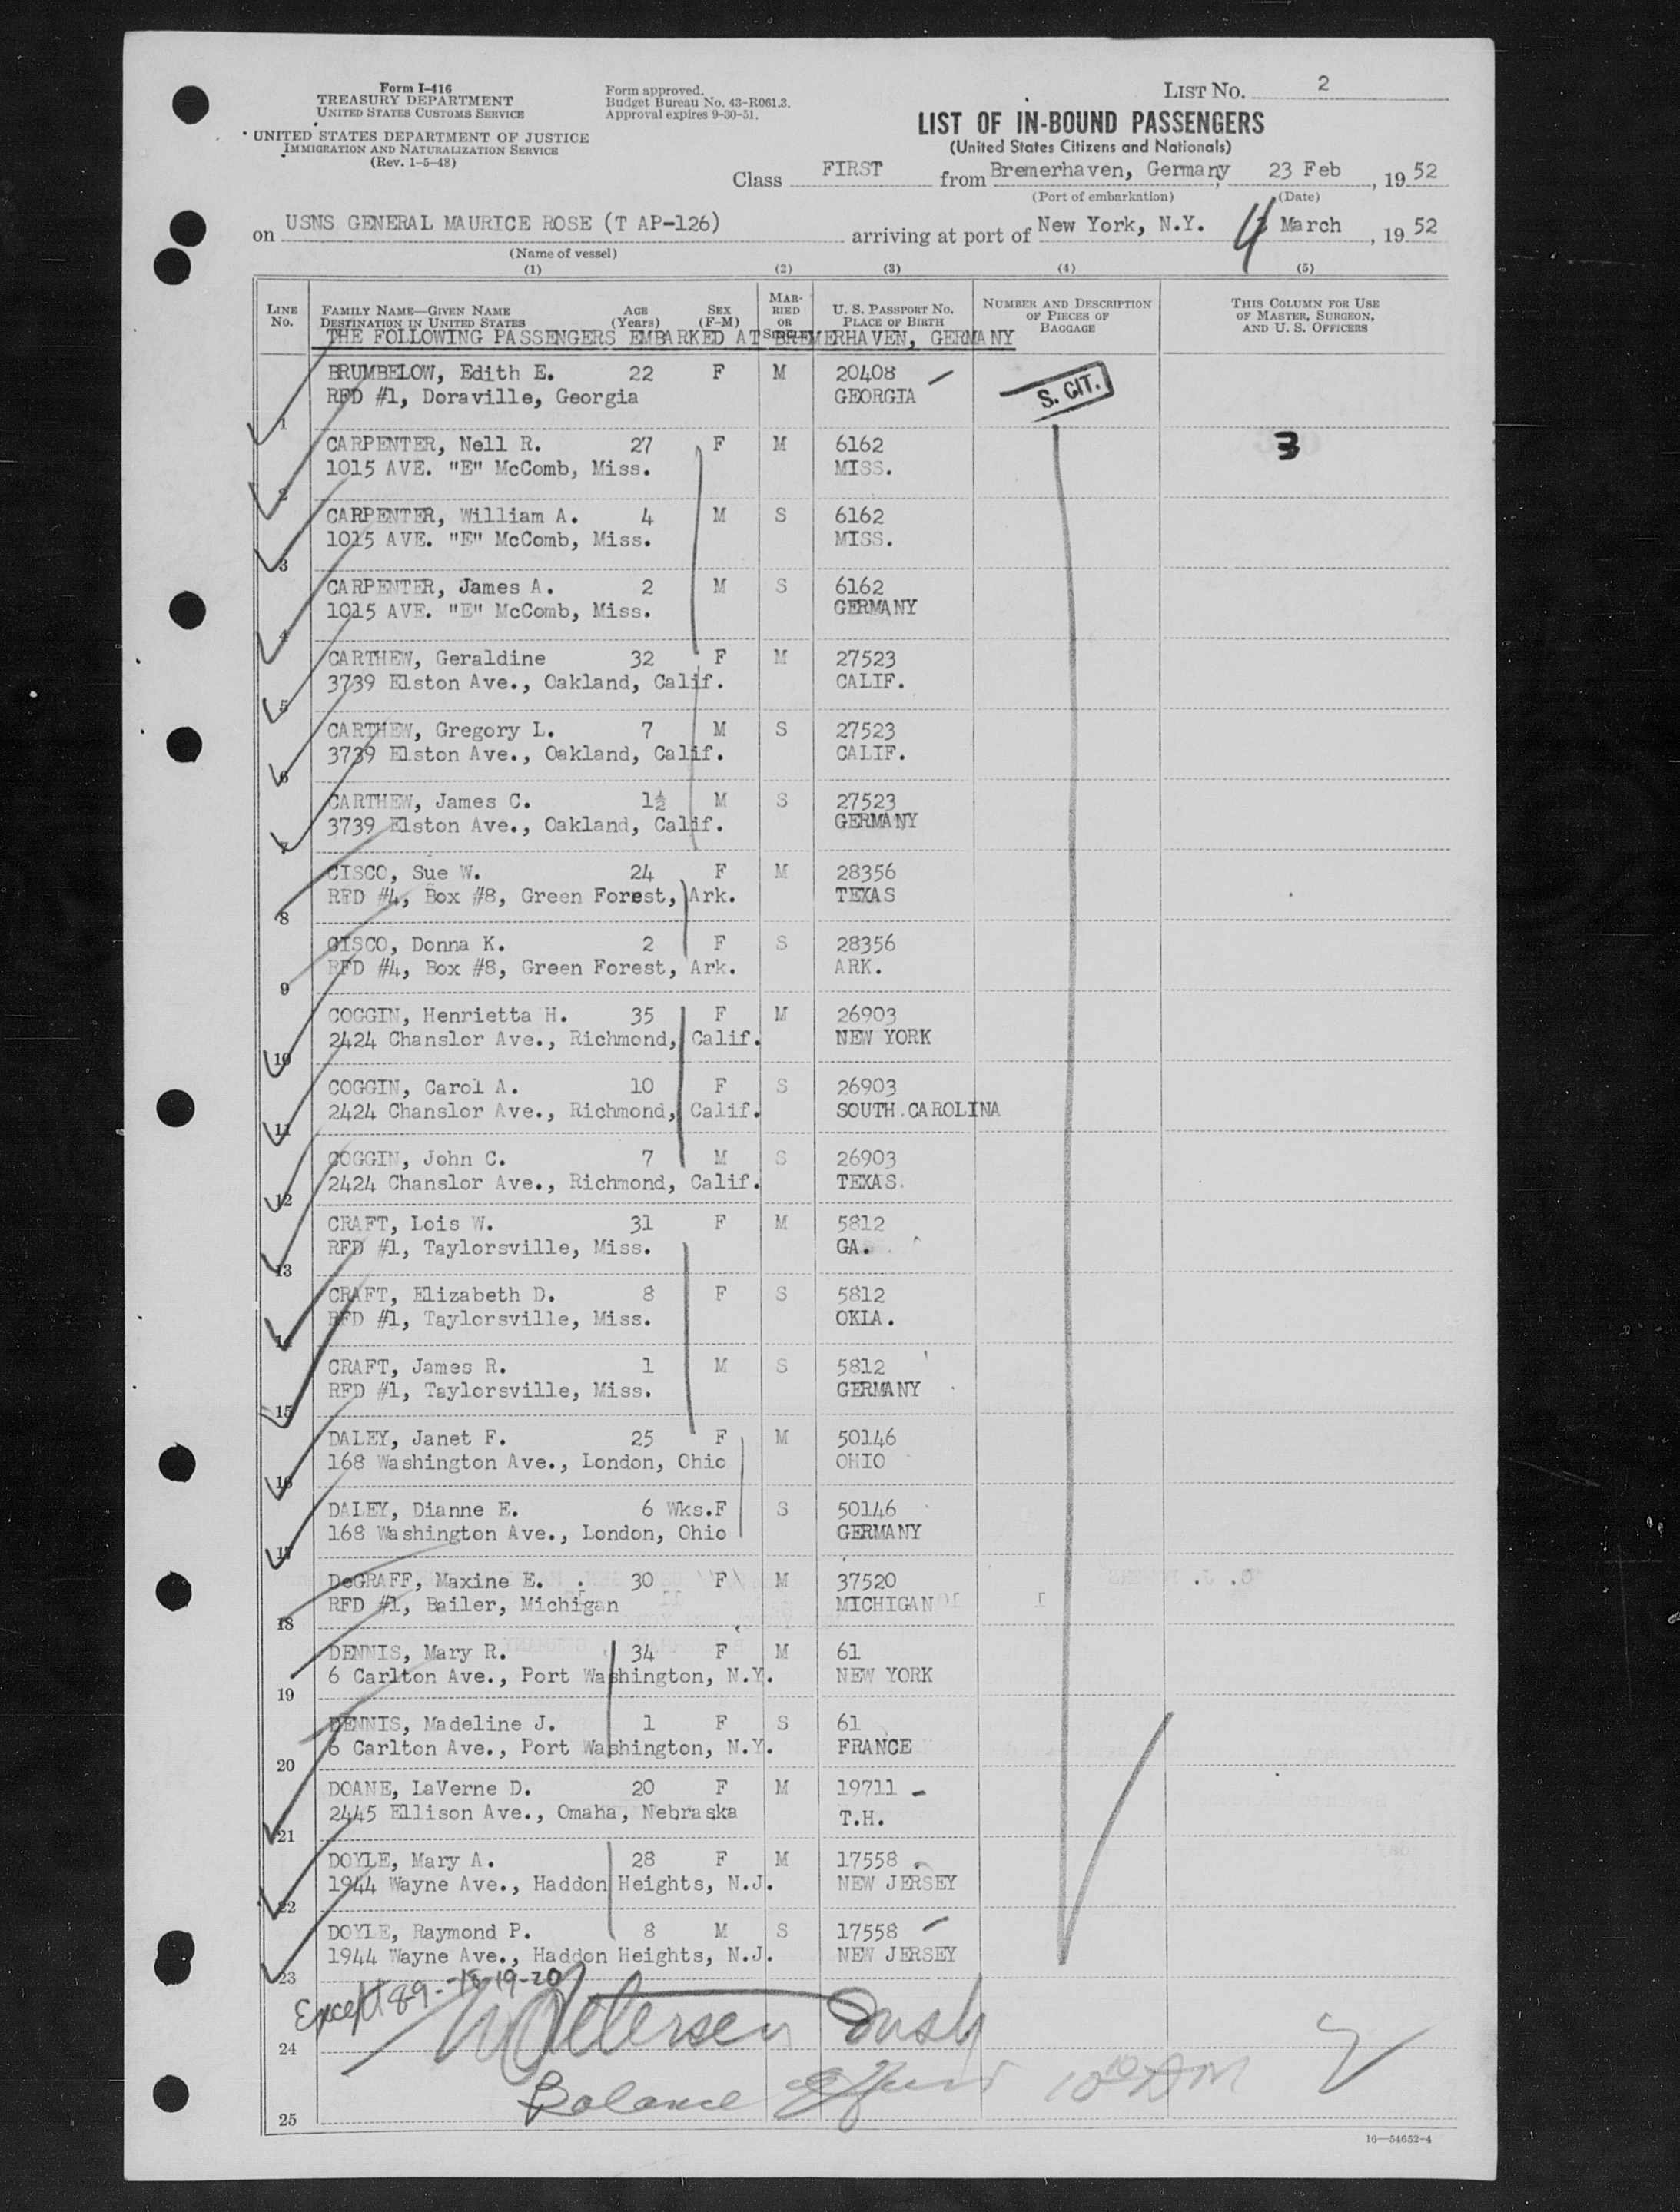 Form I-416
TREASURY DEPARTMENT
UNITED STATES CUSTOMS SERVICE
UNITED STATES DEPARTMENT OF JUSTICE
IMMIGRATION AND NATURALIZATION SERVICE
(Rev. 1-5-48)
Form approved.
Budget Bureau No. 43-R061.3.
Approval expires 9-30-51.
LIST NO. 2
LIST OF IN-BOUND PASSENGERS
(United States Citizens and Nationals)
Class FIRST from Bremerhaven, Germany, 23 Feb, 19 52
(Port of embarkation) (Date)
on USNS GENERAL MAURICE ROSE (T AP-126) arriving at port of New York, N.Y. 4 March, 19 52
(Name of vessel)
(1) (2) (3) (4) (5)
LINE No. FAMILY NAME—GIVEN NAME DESTINATION IN UNITED STATES AGE (Years) SEX (F-M) MARRIED OR SINGLE U. S. PASSPORT NO. PLACE OF BIRTH NUMBER AND DESCRIPTION OF PIECES OF BAGGAGE THIS COLUMN FOR USE OF MASTER, SURGEON, AND U. S. OFFICERS
THE FOLLOWING PASSENGERS EMBARKED AT BREMERHAVEN, GERMANY
BRUMBELOW, Edith E. 22 F M 20408
RFD #1, Doraville, Georgia GEORGIA S. CIT.
1
CARPENTER, Nell R. 27 F M 6162 3
1015 AVE. "E" McComb, Miss. MISS.
2
CARPENTER, William A. 4 M S 6162
1015 AVE. "E" McComb, Miss. MISS.
3
CARPENTER, James A. 2 M S 6162
1015 AVE. "E" McComb, Miss. GERMANY
4
CARTHEW, Geraldine 32 F M 27523
3739 Elston Ave., Oakland, Calif. CALIF.
5
CARTHEW, Gregory L. 7 M S 27523
3739 Elston Ave., Oakland, Calif. CALIF.
6
CARTHEW, James C. 1½ M S 27523
3739 Elston Ave., Oakland, Calif. GERMANY
7
CISCO, Sue W. 24 F M 28356
RFD #4, Box #8, Green Forest, Ark. TEXAS
8
CISCO, Donna K. 2 F S 28356
RFD #4, Box #8, Green Forest, Ark. ARK.
9
COGGIN, Henrietta H. 35 F M 26903
2424 Chanslor Ave., Richmond, Calif. NEW YORK
10
COGGIN, Carol A. 10 F S 26903
2424 Chanslor Ave., Richmond, Calif. SOUTH CAROLINA
11
COGGIN, John C. 7 M S 26903
2424 Chanslor Ave., Richmond, Calif. TEXAS.
12
CRAFT, Lois W. 31 F M 5812
RFD #1, Taylorsville, Miss. GA.
13
CRAFT, Elizabeth D. 8 F S 5812
RFD #1, Taylorsville, Miss. OKLA.
14
CRAFT, James R. 1 M S 5812
RFD #1, Taylorsville, Miss. GERMANY
15
DALEY, Janet F. 25 F M 50146
168 Washington Ave., London, Ohio OHIO
16
DALEY, Dianne E. 6 Wks. F S 50146
168 Washington Ave., London, Ohio GERMANY
17
DeGRAFF, Maxine E. 30 F M 37520
RFD #1, Bailer, Michigan MICHIGAN
18
DENNIS, Mary R. 34 F M 61
6 Carlton Ave., Port Washington, N.Y. NEW YORK
19
DENNIS, Madeline J. 1 F S 61
6 Carlton Ave., Port Washington, N.Y. FRANCE
20
DOANE, LaVerne D. 20 F M 19711
2445 Ellison Ave., Omaha, Nebraska T.H.
21
DOYLE, Mary A. 28 F M 17558
1944 Wayne Ave., Haddon Heights, N.J. NEW JERSEY
22
DOYLE, Raymond P. 8 M S 17558
1944 Wayne Ave., Haddon Heights, N.J. NEW JERSEY
23
Except 8-9-18-19-20
24
Balance 10 AM
25
16—54652-4